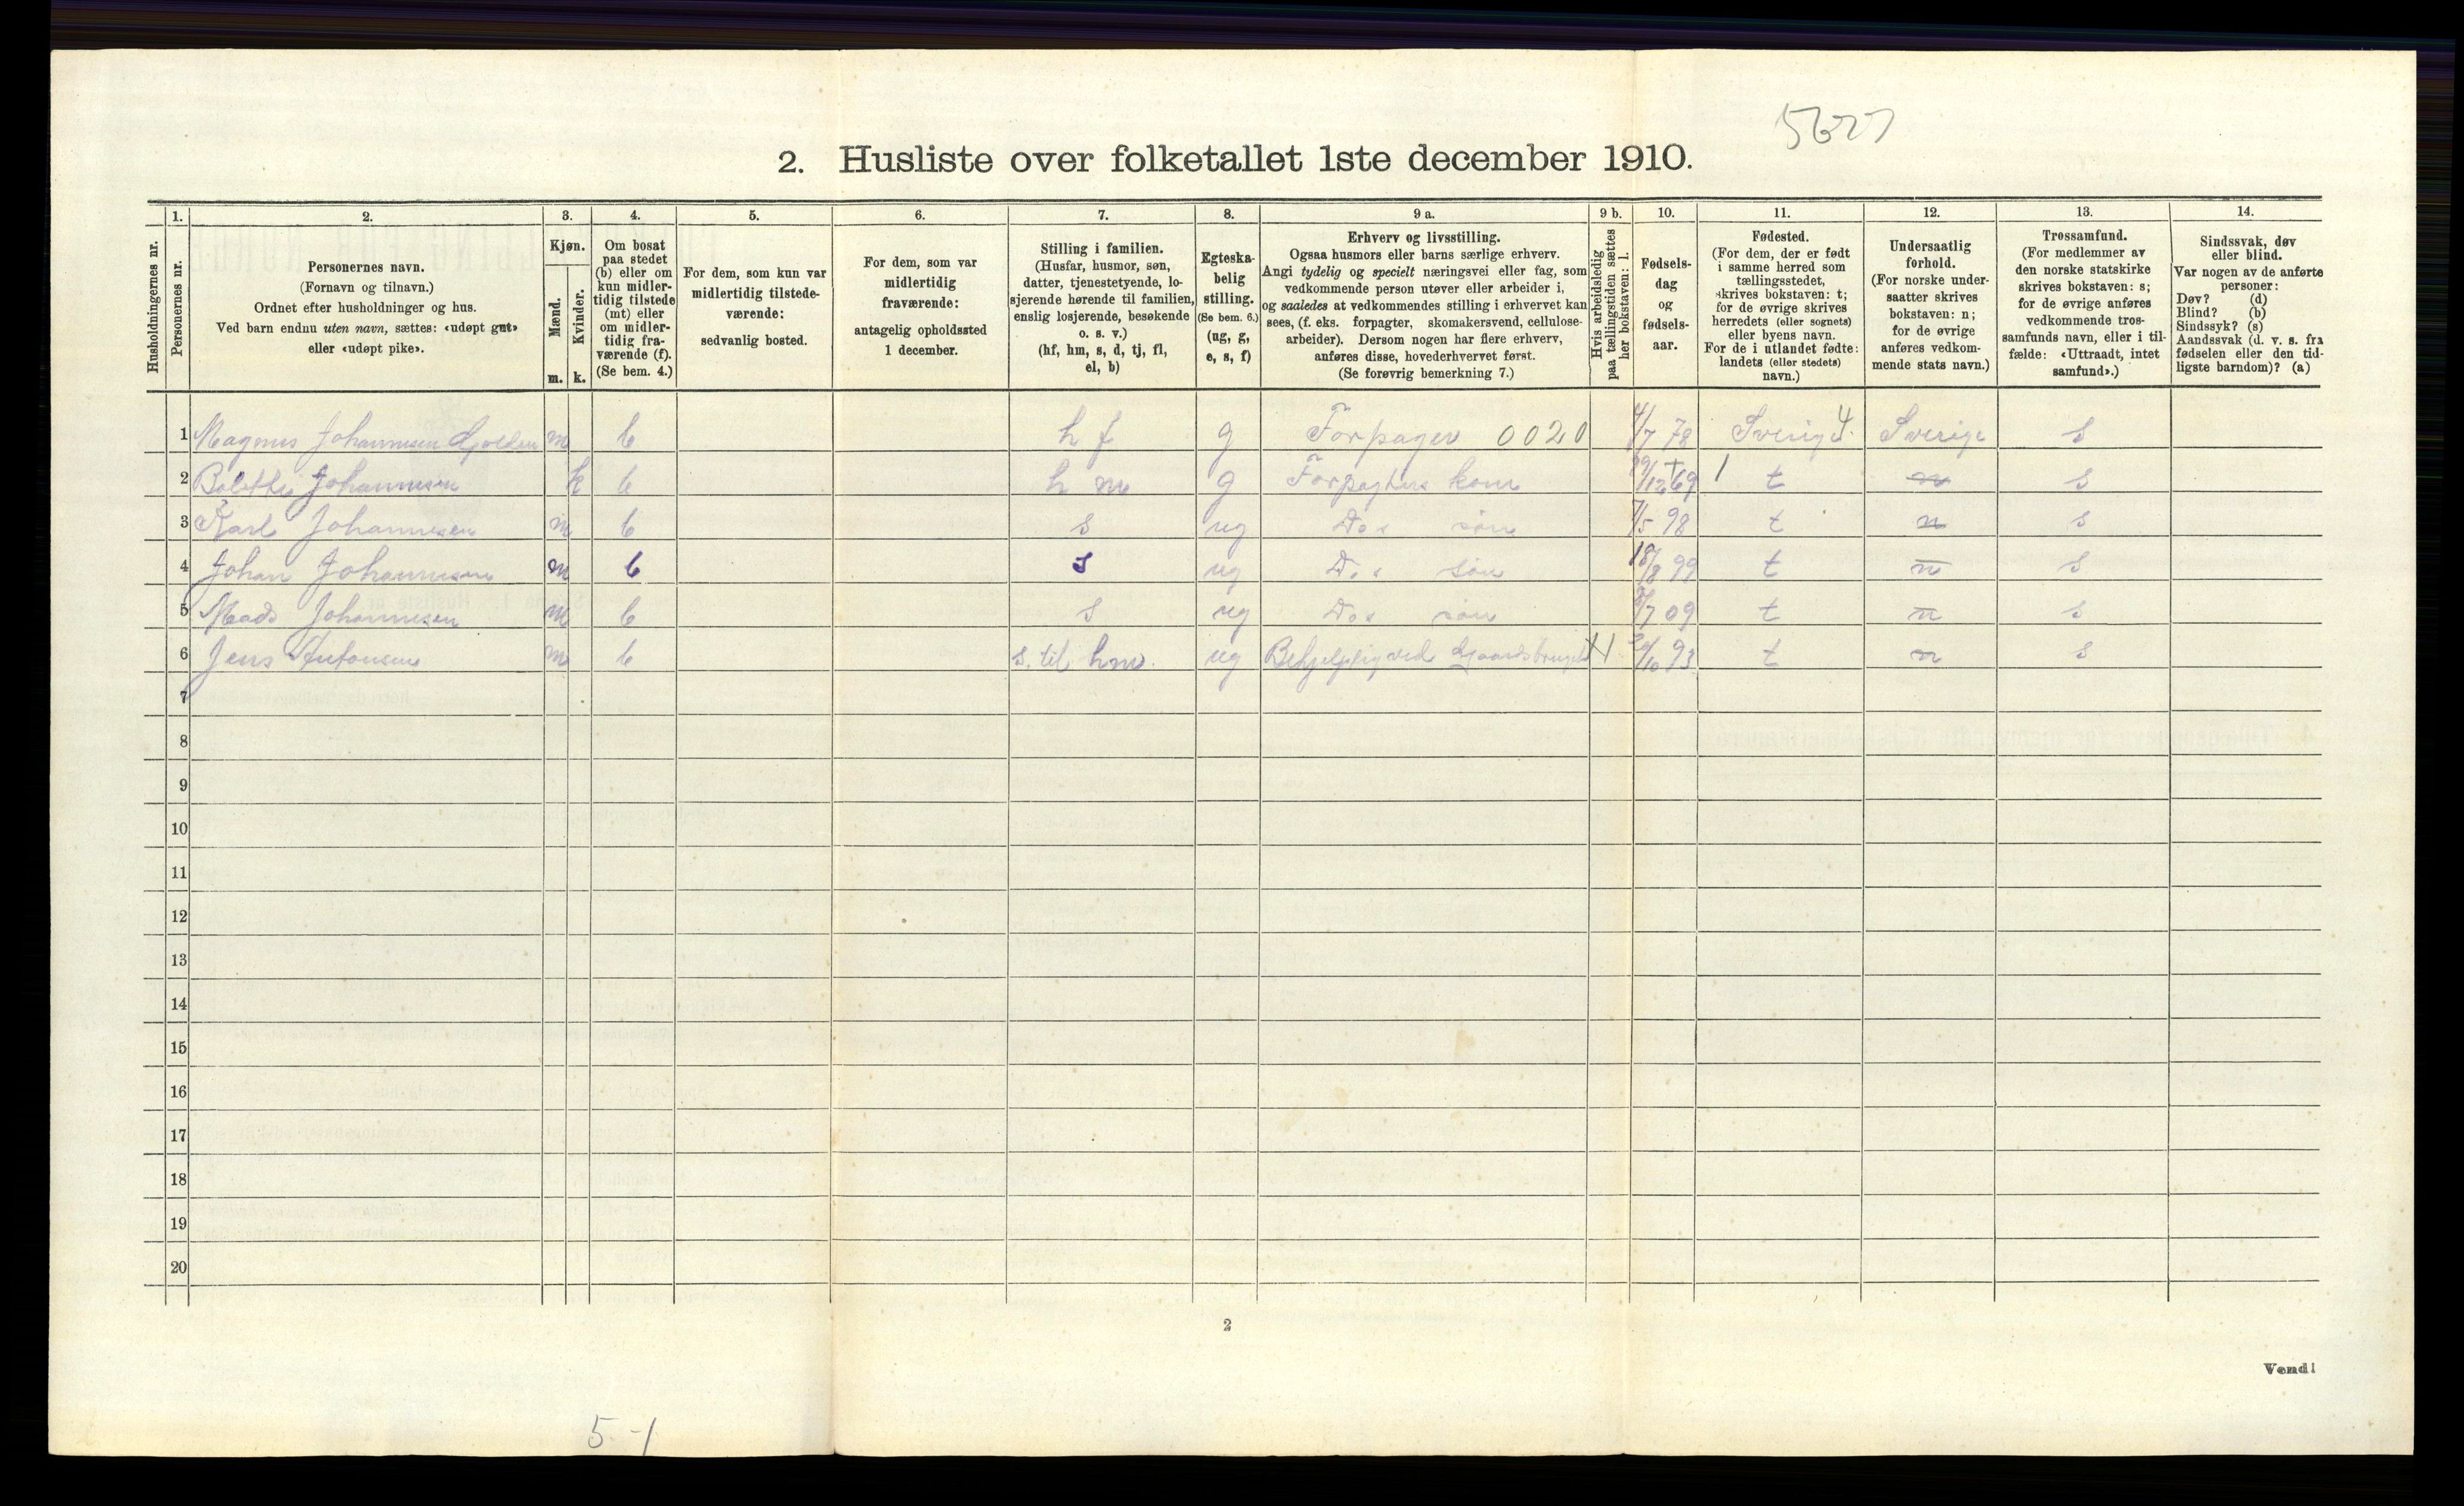 5627
2. Husliste over folketallet 1ste december 1910.
Husholdningernes nr.
1.
Personernes nr.
2.
Personernes navn.
(Fornavn og tilnavn.)
Ordnet efter husholdninger og hus.
Ved barn endnu uten navn, sættes: «udøpt gut»
eller «udøpt pike».
3.
Kjøn.
Mænd.
Kvinder.
m. k.
4.
Om bosat
paa stedet
(b) eller om
kun midler-
tidig tilstede
(mt) eller
om midler-
tidig fra-
værende (f).
(Se bem. 4.)
5.
For dem, som kun var
midlertidig tilstede-
værende:
sedvanlig bosted.
6.
For dem, som var
midlertidig
fraværende:
antagelig opholdssted
1 december.
7.
Stilling i familien.
(Husfar, husmor, søn,
datter, tjenestetyende, lo-
sjerende hørende til familien,
enslig losjerende, besøkende
o. s. v.)
(hf, hm, s, d, tj, fl,
el, b)
8.
Egteska-
belig
stilling.
(Se bem. 6.)
(ug, g,
e, s, f)
9 a.
Erhverv og livsstilling.
Ogsaa husmors eller barns særlige erhverv.
Angi tydelig og specielt næringsvei eller fag, som
vedkommende person utøver eller arbeider i,
og saaledes at vedkommendes stilling i erhvervet kan
sees, (f. eks. forpagter, skomakersvend, cellulose-
arbeider). Dersom nogen har flere erhverv,
anføres disse, hovederhvervet først.
(Se forøvrig bemerkning 7.)
9 b.
Hvis arbeidsledig
paa tællingstiden sættes
her bokstaven: l.
10.
Fødsels-
dag
og
fødsels-
aar.
11.
Fødested.
(For dem, der er født
i samme herred som
tællingsstedet,
skrives bokstaven: t;
for de øvrige skrives
herredets (eller sognets)
eller byens navn.
For de i utlandet fødte:
landets (eller stedets)
navn.)
12.
Undersaatlig
forhold.
(For norske under-
saatter skrives
bokstaven: n;
for de øvrige
anføres vedkom-
mende stats navn.)
13.
Trossamfund.
(For medlemmer av
den norske statskirke
skrives bokstaven: s;
for de øvrige anføres
vedkommende tros-
samfunds navn, eller i til-
fælde: «Uttraadt, intet
samfund».)
14.
Sindssvak, døv
eller blind.
Var nogen av de anførte
personer:
Døv? (d)
Blind? (b)
Sindssyk? (s)
Aandssvak (d. v. s. fra
fødselen eller den tid-
ligste barndom)? (a)
1 Magnus Johannesen m b h f g Forpager 0020 4/7 78 Sverige 4 Sverige s
2 Bolette Johannesen k b h m g Forpagters kone 12 69 1 t n s
3 Karl Johannesen m b s ug Do s søn 7/5 98 t n s
4 Johan Johannesen m b s ug Do s søn 18/8 99 t n s
5 Mads Johannesen m b s ug Do s søn 7 09 t n s
6 Jens Antonsen m b s. til hm. ug Behjelpelig ved Gaardsbruget 10 93 t n s
7
8
9
10
11
12
13
14
15
16
17
18
19
20
2
Vend!
5-1